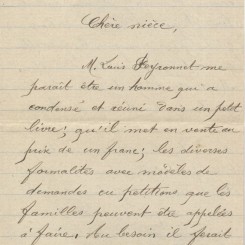 Chère nièce,
M. Louis Peyronnet me
parait être un homme qui a
condensé et réuni dans un petit
livre; qu'il met en vente au
prix de un franc; les diverses
formalités avec modèles de
demandes ou petitions que les
familles peuvent être appelées
à faire. Au besoin il ferait